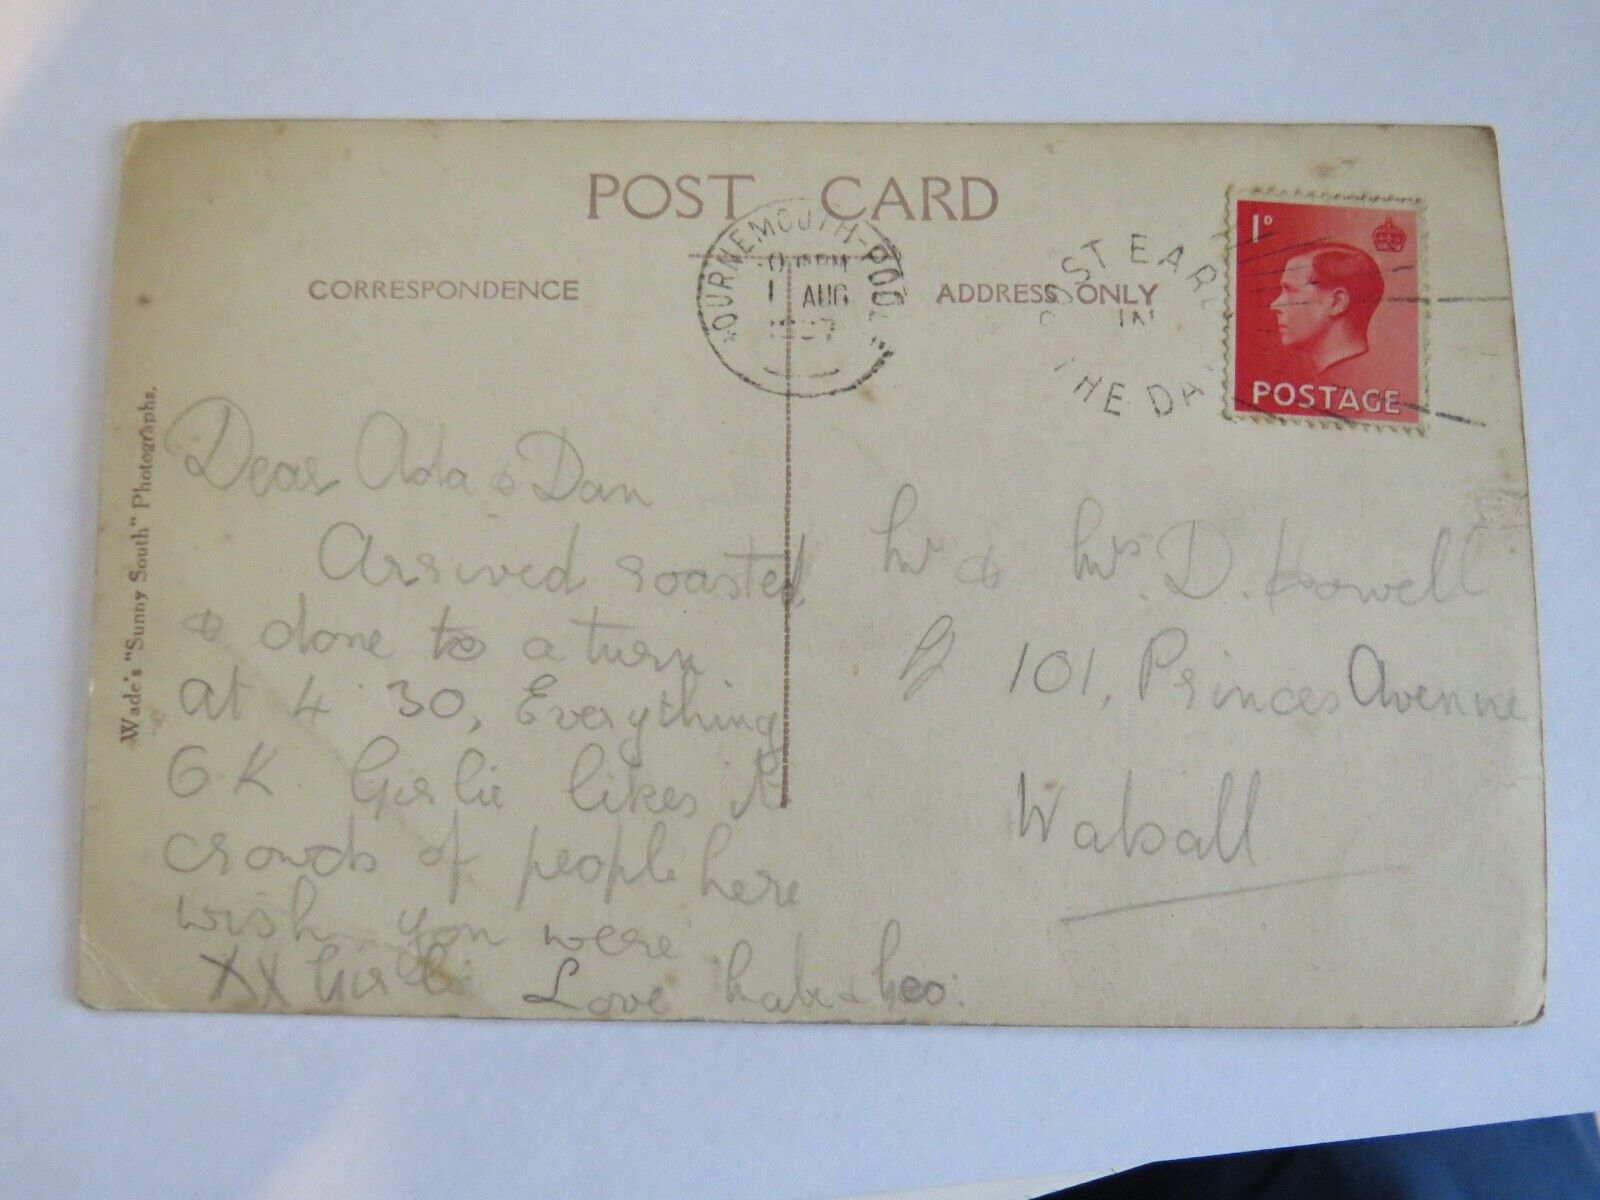 POST CARD
CORRESPONDENCE
ADDRESS ONLY
BOURNEMOUTH-POOLE
PM
1 AUG
1937
POST EARLY
IN
THE DAY
1D
POSTAGE
Wade's "Sunny South" Photographs.
Dear Ada & Dan
Arrived roasted
& done to a turn
at 4.30, Everything
O.K. Girlie likes it
crowds of people here
wish you were
XX Girlie Love &
Mr & Mrs D. Howell
101, Princes Avenue
Walsall